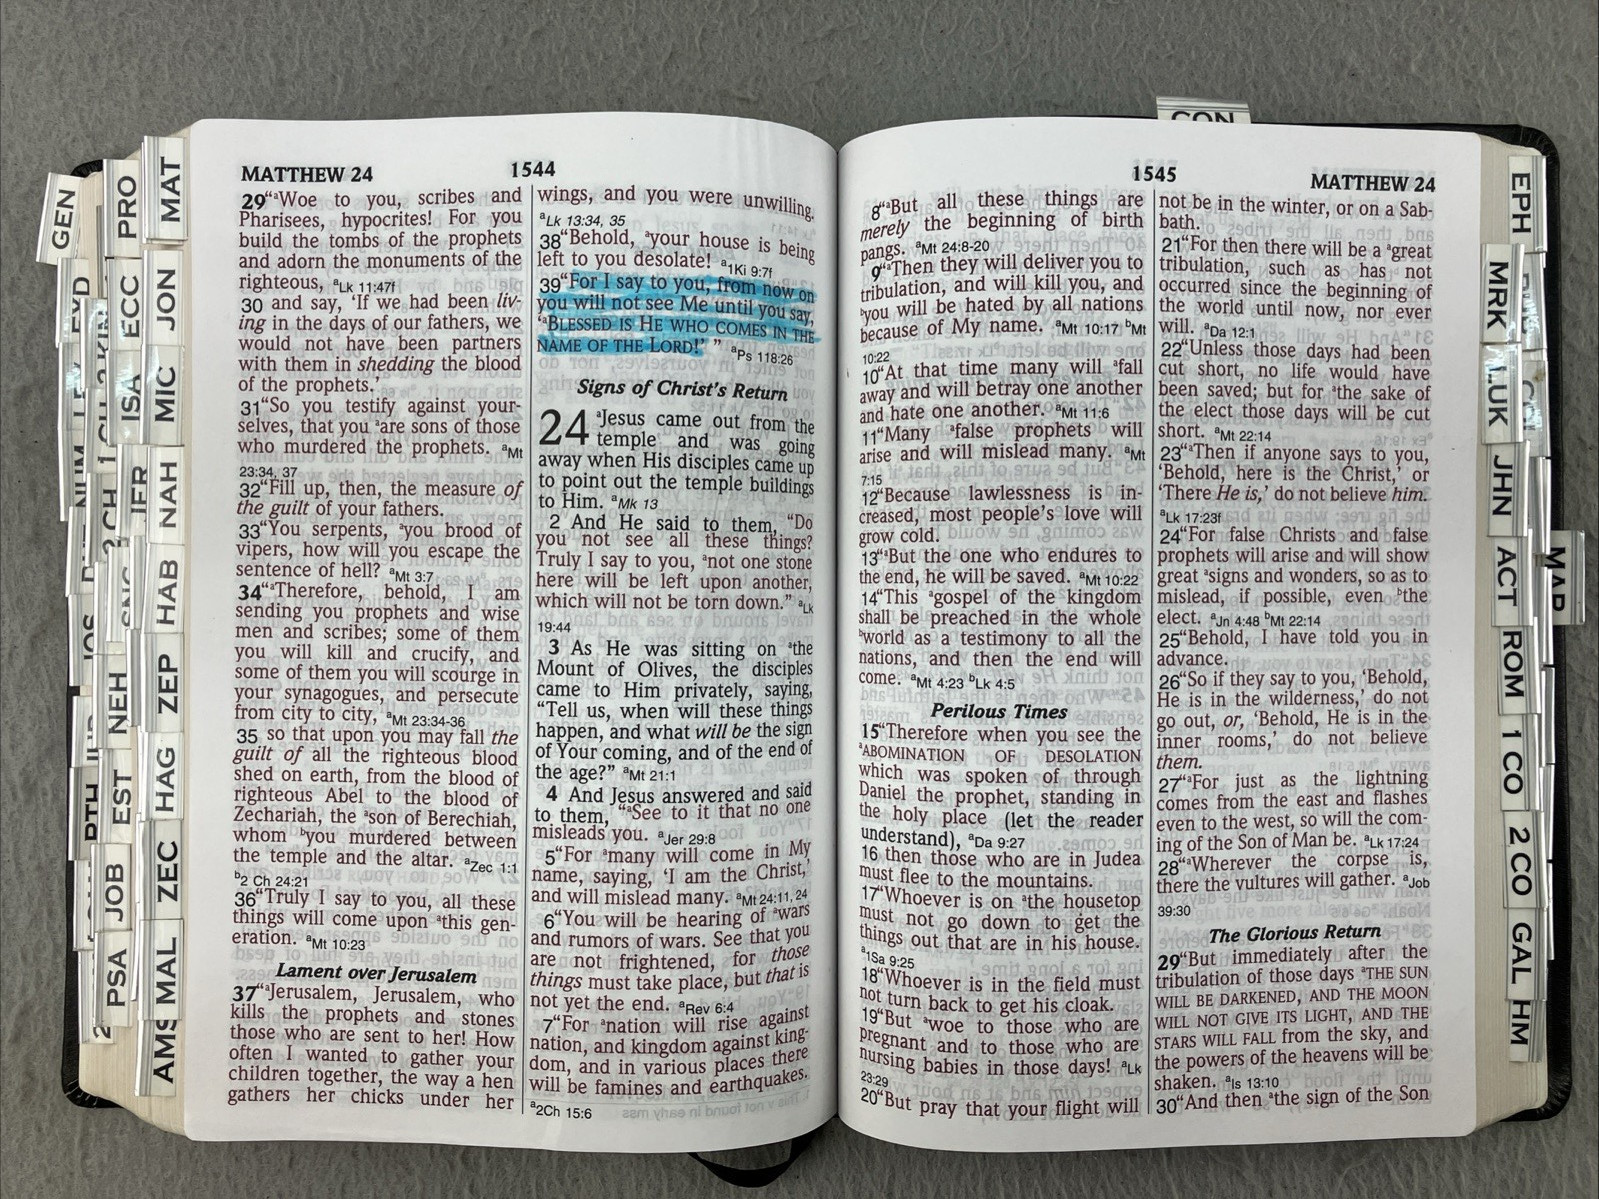 MATTHEW 24
1544
29“ᵃWoe to you, scribes and
Pharisees, hypocrites! For you
build the tombs of the prophets
and adorn the monuments of the
righteous, ᵃLk 11:47f
30 and say, ‘If we had been liv-
ing in the days of our fathers, we
would not have been partners
with them in shedding the blood
of the prophets.’
31“So you testify against your-
selves, that you ᵃare sons of those
who murdered the prophets. ᵃMt
23:34, 37
32“Fill up, then, the measure of
the guilt of your fathers.
33“You serpents, ᵃyou brood of
vipers, how will you escape the
sentence of hell? ᵃMt 3:7
34“ᵃTherefore, behold, I am
sending you prophets and wise
men and scribes; some of them
you will kill and crucify, and
some of them you will scourge in
your synagogues, and persecute
from city to city, ᵃMt 23:34-36
35 so that upon you may fall the
guilt of all the righteous blood
shed on earth, from the blood of
righteous Abel to the blood of
Zechariah, the ᵃson of Berechiah,
whom ᵇyou murdered between
the temple and the altar. ᵃZec 1:1
ᵇ2 Ch 24:21
36“Truly I say to you, all these
things will come upon ᵃthis gen-
eration. ᵃMt 10:23
Lament over Jerusalem
37“ᵃJerusalem, Jerusalem, who
kills the prophets and stones
those who are sent to her! How
often I wanted to gather your
children together, the way a hen
gathers her chicks under her
wings, and you were unwilling.
ᵃLk 13:34, 35
38“Behold, ᵃyour house is being
left to you desolate! ᵃ1Ki 9:7f
39“For I say to you, from now on
you will not see Me until you say,
‘ᵃBLESSED IS HE WHO COMES IN THE
NAME OF THE LORD!’ ” ᵃPs 118:26
Signs of Christ’s Return
24 ᵃJesus came out from the
temple and was going
away when His disciples came up
to point out the temple buildings
to Him. ᵃMk 13
2 And He said to them, “Do
you not see all these things?
Truly I say to you, ᵃnot one stone
here will be left upon another,
which will not be torn down.” ᵃLk
19:44
3 As He was sitting on ᵃthe
Mount of Olives, the disciples
came to Him privately, saying,
“Tell us, when will these things
happen, and what will be the sign
of Your coming, and of the end of
the age?” ᵃMt 21:1
4 And Jesus answered and said
to them, “ᵃSee to it that no one
misleads you. ᵃJer 29:8
5“For ᵃmany will come in My
name, saying, ‘I am the Christ,’
and will mislead many. ᵃMt 24:11, 24
6“You will be hearing of ᵃwars
and rumors of wars. See that you
are not frightened, for those
things must take place, but that is
not yet the end. ᵃRev 6:4
7“For ᵃnation will rise against
nation, and kingdom against king-
dom, and in various places there
will be famines and earthquakes.
ᵃ2Ch 15:6
1545
MATTHEW 24
8“ᵃBut all these things are
merely the beginning of birth
pangs. ᵃMt 24:8-20
9“ᵃThen they will deliver you to
tribulation, and will kill you, and
ᵇyou will be hated by all nations
because of My name. ᵃMt 10:17 ᵇMt
10:22
10“At that time many will ᵃfall
away and will betray one another
and hate one another. ᵃMt 11:6
11“Many ᵃfalse prophets will
arise and will mislead many. ᵃMt
7:15
12“Because lawlessness is in-
creased, most people’s love will
grow cold.
13“ᵃBut the one who endures to
the end, he will be saved. ᵃMt 10:22
14“This ᵃgospel of the kingdom
shall be preached in the whole
ᵇworld as a testimony to all the
nations, and then the end will
come. ᵃMt 4:23 ᵇLk 4:5
Perilous Times
15“Therefore when you see the
ᵃABOMINATION OF DESOLATION
which was spoken of through
Daniel the prophet, standing in
the holy place (let the reader
understand), ᵃDa 9:27
16 then those who are in Judea
must flee to the mountains.
17“Whoever is on ᵃthe housetop
must not go down to get the
things out that are in his house.
ᵃ1Sa 9:25
18“Whoever is in the field must
not turn back to get his cloak.
19“But ᵃwoe to those who are
pregnant and to those who are
nursing babies in those days! ᵃLk
23:29
20“But pray that your flight will
not be in the winter, or on a Sab-
bath.
21“For then there will be a ᵃgreat
tribulation, such as has not
occurred since the beginning of
the world until now, nor ever
will. ᵃDa 12:1
22“Unless those days had been
cut short, no life would have
been saved; but for ᵃthe sake of
the elect those days will be cut
short. ᵃMt 22:14
23“ᵃThen if anyone says to you,
‘Behold, here is the Christ,’ or
‘There He is,’ do not believe him.
ᵃLk 17:23f
24“For false Christs and false
prophets will arise and will show
great ᵃsigns and wonders, so as to
mislead, if possible, even ᵇthe
elect. ᵃJn 4:48 ᵇMt 22:14
25“Behold, I have told you in
advance.
26“So if they say to you, ‘Behold,
He is in the wilderness,’ do not
go out, or, ‘Behold, He is in the
inner rooms,’ do not believe
them.
27“ᵃFor just as the lightning
comes from the east and flashes
even to the west, so will the com-
ing of the Son of Man be. ᵃLk 17:24
28“ᵃWherever the corpse is,
there the vultures will gather. ᵃJob
39:30
The Glorious Return
29“But immediately after the
tribulation of those days ᵃTHE SUN
WILL BE DARKENED, AND THE MOON
WILL NOT GIVE ITS LIGHT, AND THE
STARS WILL FALL from the sky, and
the powers of the heavens will be
shaken. ᵃIs 13:10
30“And then ᵃthe sign of the Son
GEN
PRO
ECC
ISA
JER
NEH
EST
JOB
PSA
MAT
JON
MIC
NAH
HAB
ZEP
HAG
ZEC
MAL
AMS
CON
EPH
MRK
LUK
JHN
ACT
ROM
1 CO
2 CO
GAL
HM
MAP